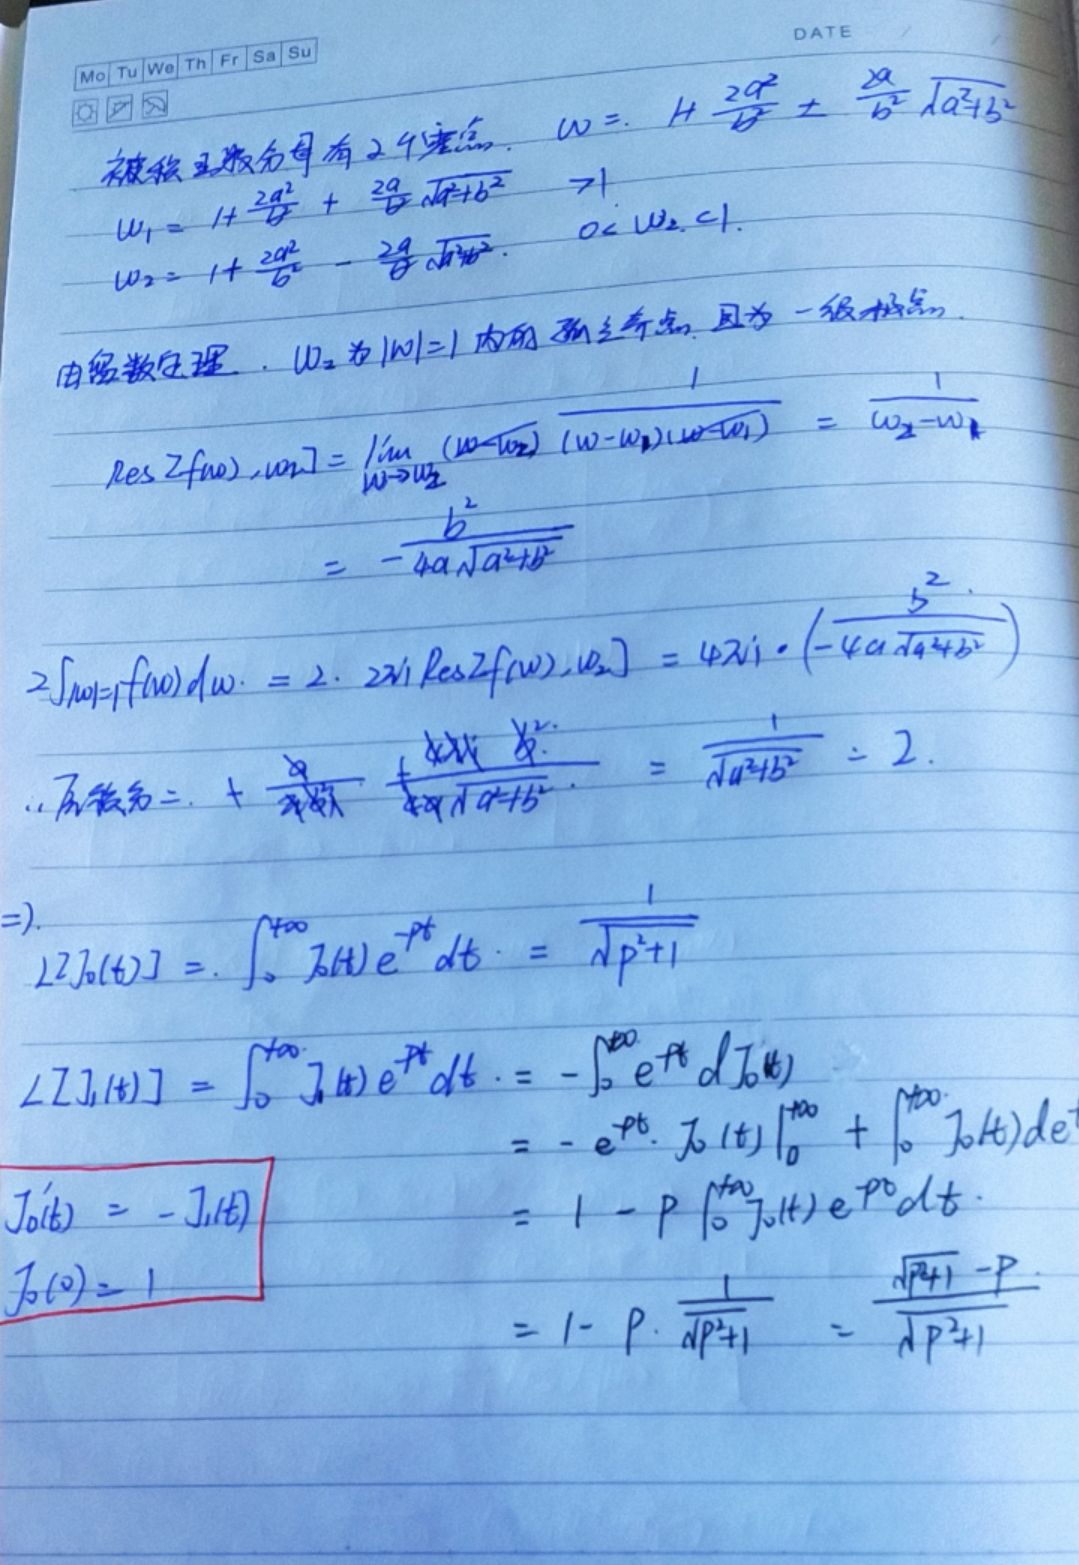 DATE
Mo Tu We Th Fr Sa Su
被积函数分母有2个零点. w = 1+ 2a²/b² ± 2a/b² √(a²+b²)
w₁ = 1+ 2a²/b² + 2a/b² √(a²+b²) >1
w₂ = 1+ 2a²/b² - 2a/b² √(a²+b²). 0< w₂ <1.
由留数定理. w₂ 为 |w|=1 内的 孤立奇点 且为 一级极点.
Res[f(w), w₂] = lim w→w₂ (w-w₂) 1/((w-w₂)(w-w₁)) = 1/(w₂-w₁)
= b²/(-4a√(a²+b²))
2∫|w|=1 f(w)dw. = 2. 2πi Res[f(w), w₂] = 4πi · (b²/(-4a√(a²+b²)))
= 1/√(a²+b²) = 2.
=).
L[J₀(t)] = ∫₀^{+∞} J₀(t) e^{-pt} dt. = 1/√(p²+1)
L[J₁(t)] = ∫₀^{+∞} J₁(t) e^{-pt} dt. = -∫₀^{+∞} e^{-pt} dJ₀(t)
= - e^{-pt}. J₀(t)|₀^{+∞} + ∫₀^{+∞} J₀(t) de
J₀'(t) = - J₁(t)
= 1 - p ∫₀^{+∞} J₀(t) e^{-pt} dt.
J₀(0) = 1
= 1 - p. 1/√(p²+1) = (√(p²+1) - p)/√(p²+1)